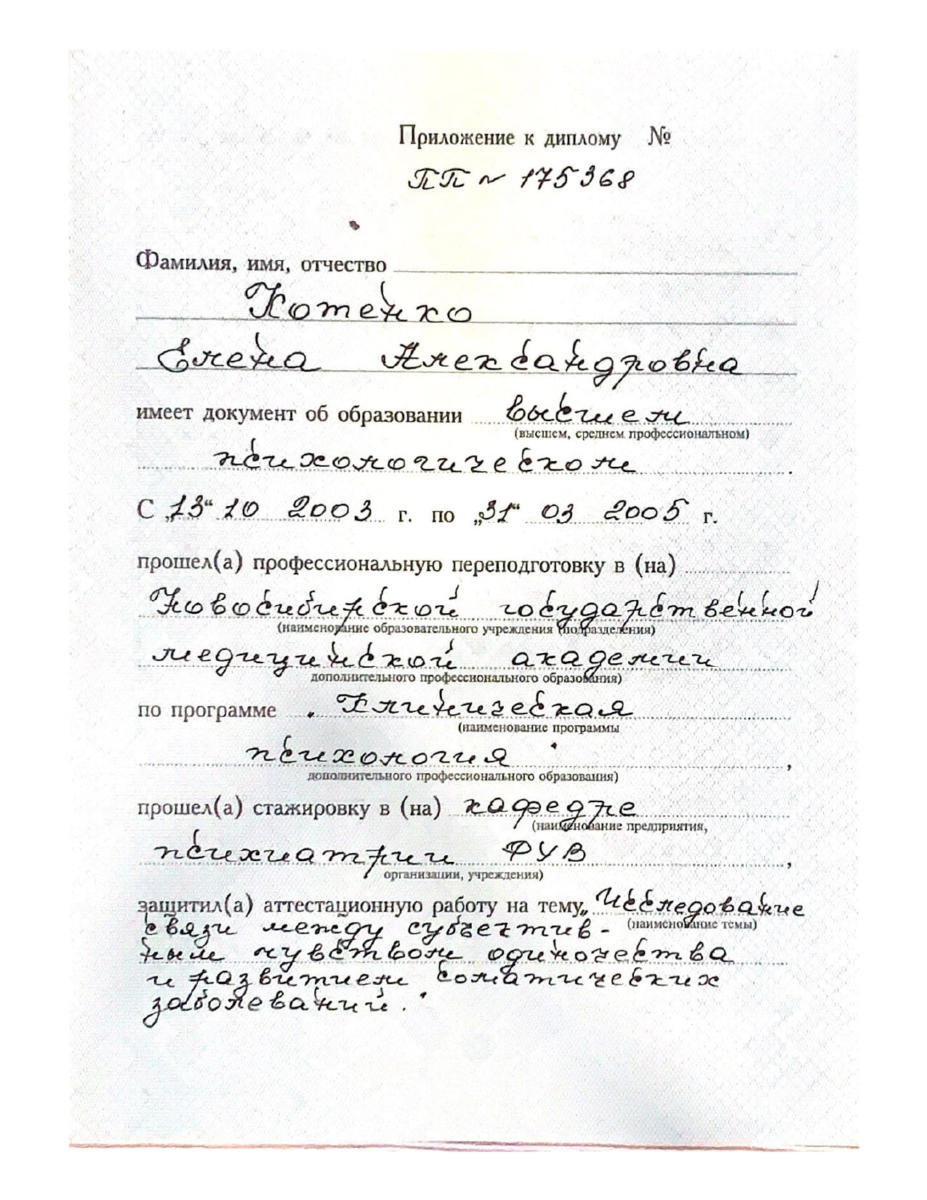 Приложение к диплому №
ПП № 175368
Фамилия, имя, отчество
Котенко
Елена Александровна
имеет документ об образовании высшем
(высшем, среднем профессиональном)
психологическом.
С „13“ 10 2003 г. по „31“ 03 2005 г.
прошел(а) профессиональную переподготовку в (на)
Новосибирской государственной
(наименование образовательного учреждения (подразделения)
медицинской академии
дополнительного профессионального образования)
по программе „Клиническая
(наименование программы
психология“,
дополнительного профессионального образования)
прошел(а) стажировку в (на) кафедре
(наименование предприятия,
психиатрии ФУВ,
организации, учреждения)
защитил(а) аттестационную работу на тему „Исследование
(наименование темы)
связи между субъектив-
ным чувством одиночества
и развитием соматических
заболеваний.“